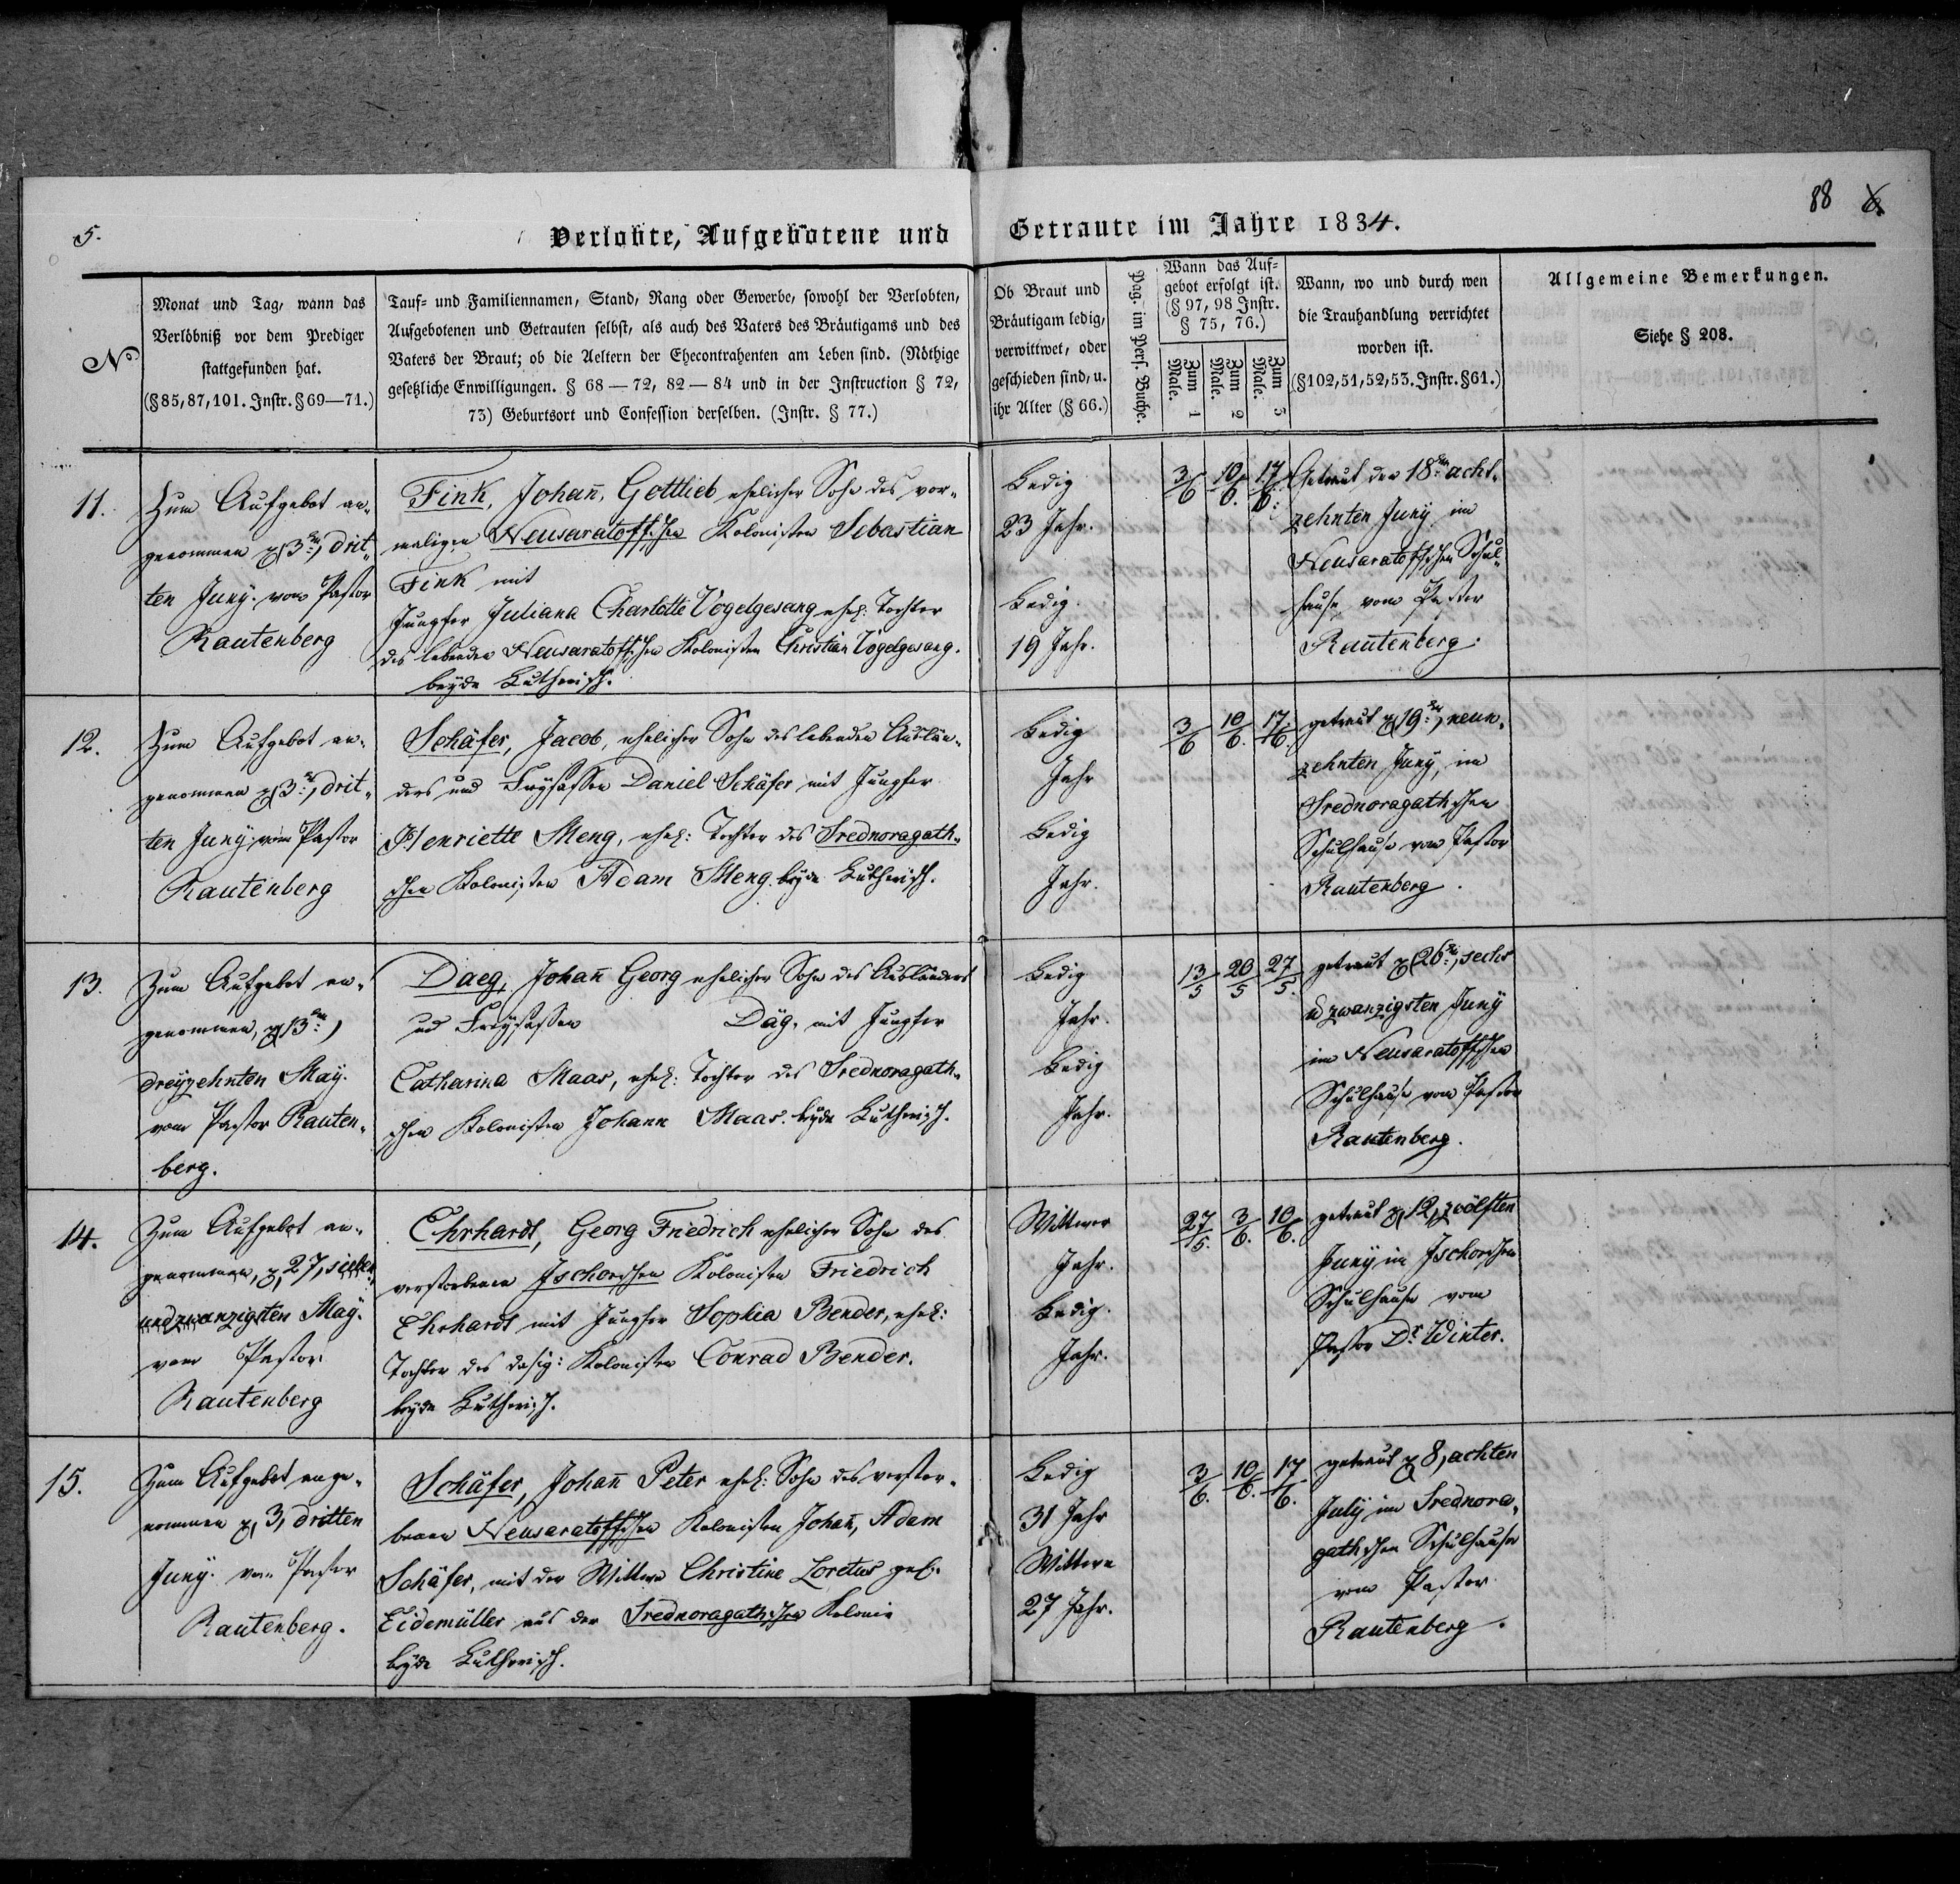 5.
88
6.
Verlobte, Aufgebotene und
Getraute im Jahre 1834.
No
Monat und Tag, wann das
Verlöbniß vor dem Prediger
stattgefunden hat.
(§85, 87, 101. Instr. §69—71.)
Tauf- und Familiennamen, Stand, Rang oder Gewerbe, sowohl der Verlobten,
Aufgebotenen und Getrauten selbst, als auch des Vaters des Bräutigams und des
Vaters der Braut; ob die Aeltern der Ehecontrahenten am Leben sind. (Nöthige
gesetzliche Enwilligungen. § 68—72, 82—84 und in der Instruction § 72,
73) Geburtsort und Confession derselben. (Instr. § 77.)
Ob Braut und
Bräutigam ledig,
verwittwet, oder
geschieden sind, u.
ihr Alter (§ 66.)
Pag. im Pers. Buche.
Wann das Auf-
gebot erfolgt ist.
(§ 97, 98 Instr.
§ 75, 76.)
Zum 1
Male.
Zum 2
Male.
Zum 3
Male.
Wann, wo und durch wen
die Trauhandlung verrichtet
worden ist.
(§102, 51, 52, 53. Instr. §61.)
Allgemeine Bemerkungen.
Siehe § 208.
11.
Zum Aufgebot an-
genommen d 3ten, drit-
ten Juny. vom Pastor
Rautenberg
Fink, Johañ, Gottlieb ehelicher Sohn des vor-
maligen Neusaratoffschen Kolonisten Sebastian
Fink mit
Jungfer Juliana Charlotte Vogelgesang ehel: Tochter
des lebenden Neusaratoffschen Kolonisten Christian Vogelgesang.
beyde Lutherisch.
Ledig
23 Jahr.
Ledig.
19 Jahr.
3/6 10/6. 17/6.
Getraut den 18ten acht-
zehnten Juny im
Neusaratoffschen Schul-
hause vom Pastor
Rautenberg.
12.
Zum Aufgebot an-
genommen d 3ten, drit-
ten Juny. vom Pastor
Rautenberg
Schäfer, Jacob, ehelicher Sohn des lebenden Auslän-
ders und Freysassen Daniel Schäfer mit Jungfer
Henriette Meng, ehel: Tochter des Srednoragath-
schen Kolonisten Adam Meng. beyde Lutherisch.
Ledig
Jahr
Ledig
Jahr.
3/6 10/6. 17/6.
getraut d 19ten, neun-
zehnten Juny, im
Srednoragathschen
Schulhause vom Pastor
Rautenberg.
13.
Zum Aufgebot an-
genommen, d 13ten,
dreyzehnten May.
vom Pastor Rauten-
berg.
Daeg, Johañ Georg ehelicher Sohn des Ausländers
und Freysassen Däg, mit Jungfer
Catharina Maas, ehel: Tochter des Srednoragath-
schen Kolonisten Johann Maas. beyde Lutherisch.
Ledig
Jahr.
Ledig
Jahr.
13/5 20/5 27/5.
getraut d 26ten, sechs
u zwanzigsten Juny
im Neusaratoffschen
Schulhause vom Pastor
Rautenberg.
14.
Zum Aufgebot an-
genommen, d 27, sieben
undzwanzigsten May.
vom Pastor
Rautenberg
Ehrhardt, Georg Friedrich ehelicher Sohn des
verstorbenen Ischorschen Kolonisten Friedrich
Ehrhardt mit Jungfer Sophia Bender, ehel:
Tochter des dasig: Kolonisten Conrad Bender.
beyde Lutherisch.
Wittwer
Jahr.
Ledig.
Jahr.
27/5. 3/6. 10/6.
getraut d 12, zwölften
Juny im Ischorschen
Schulhause vom
Pastor Dr Winter.
15.
Zum Aufgebot ange-
nommen d 3, dritten
Juny. vom Pastor
Rautenberg.
Schäfer, Johañ Peter ehel: Sohn des verstor-
benen Neusaratoffschen Kolonisten Johañ, Adam
Schäfer, mit der Wittwe Christine Loretus geb.
Eidemüller aus der Srednoragathschen Kolonie
beyde Lutherisch.
Ledig
31 Jahr
Wittwe
27 Jahr.
3/6. 10/6. 17/6.
getraut d 8, achten
July im Srednora-
gathschen Schulhause
vom Pastor
Rautenberg.